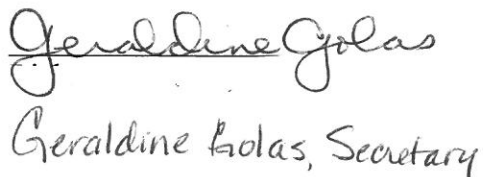 Geraldine Golas
Geraldine Golas, Secretary